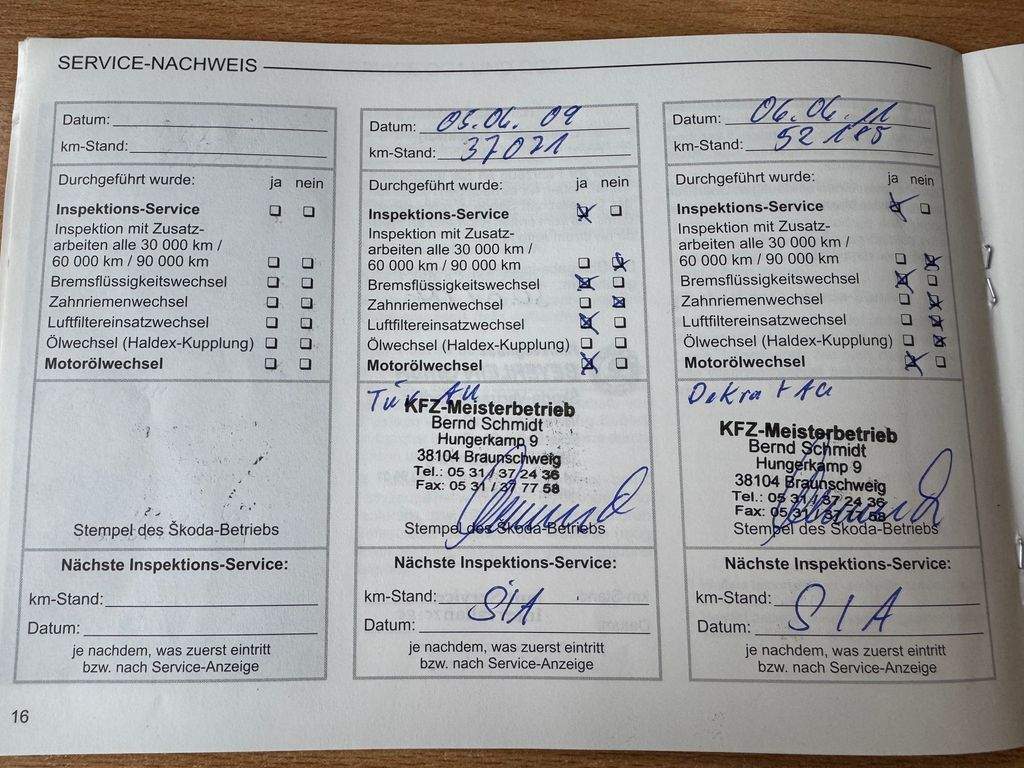 SERVICE-NACHWEIS
Datum:
km-Stand:
Durchgeführt wurde: ja nein
Inspektions-Service
Inspektion mit Zusatz-
arbeiten alle 30 000 km /
60 000 km / 90 000 km
Bremsflüssigkeitswechsel
Zahnriemenwechsel
Luftfiltereinsatzwechsel
Ölwechsel (Haldex-Kupplung)
Motorölwechsel
Stempel des Škoda-Betriebs
Nächste Inspektions-Service:
km-Stand:
Datum:
je nachdem, was zuerst eintritt
bzw. nach Service-Anzeige
Datum: 05.06.09
km-Stand: 37021
Durchgeführt wurde: ja nein
Inspektions-Service
Inspektion mit Zusatz-
arbeiten alle 30 000 km /
60 000 km / 90 000 km
Bremsflüssigkeitswechsel
Zahnriemenwechsel
Luftfiltereinsatzwechsel
Ölwechsel (Haldex-Kupplung)
Motorölwechsel
Tüv AU
KFZ-Meisterbetrieb
Bernd Schmidt
Hungerkamp 9
38104 Braunschweig
Tel.: 05 31 / 37 24 36
Fax: 05 31 / 37 77 58
Stempel des Škoda-Betriebs
Nächste Inspektions-Service:
km-Stand:
SIA
Datum:
je nachdem, was zuerst eintritt
bzw. nach Service-Anzeige
Datum: 06.06.11
km-Stand: 52185
Durchgeführt wurde: ja nein
Inspektions-Service
Inspektion mit Zusatz-
arbeiten alle 30 000 km /
60 000 km / 90 000 km
Bremsflüssigkeitswechsel
Zahnriemenwechsel
Luftfiltereinsatzwechsel
Ölwechsel (Haldex-Kupplung)
Motorölwechsel
Dekra + AU
KFZ-Meisterbetrieb
Bernd Schmidt
Hungerkamp 9
38104 Braunschweig
Tel.: 05 31 / 37 24 36
Fax: 05 31 / 37 77 58
Stempel des Škoda-Betriebs
Nächste Inspektions-Service:
km-Stand:
SIA
Datum:
je nachdem, was zuerst eintritt
bzw. nach Service-Anzeige
16